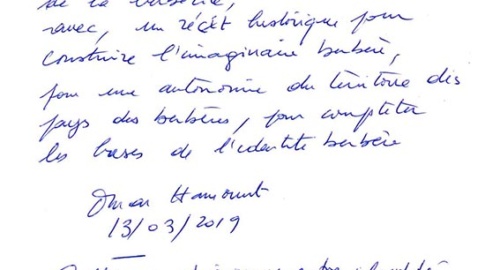 de la berbérie,
avec, un récet historique pour
construire l'imaginaire berbère,
pour une autonomie du térritoire des
pays des berbères, pour completer
les bases de l'identité berbère
Omar Hamourit
13/03/2019